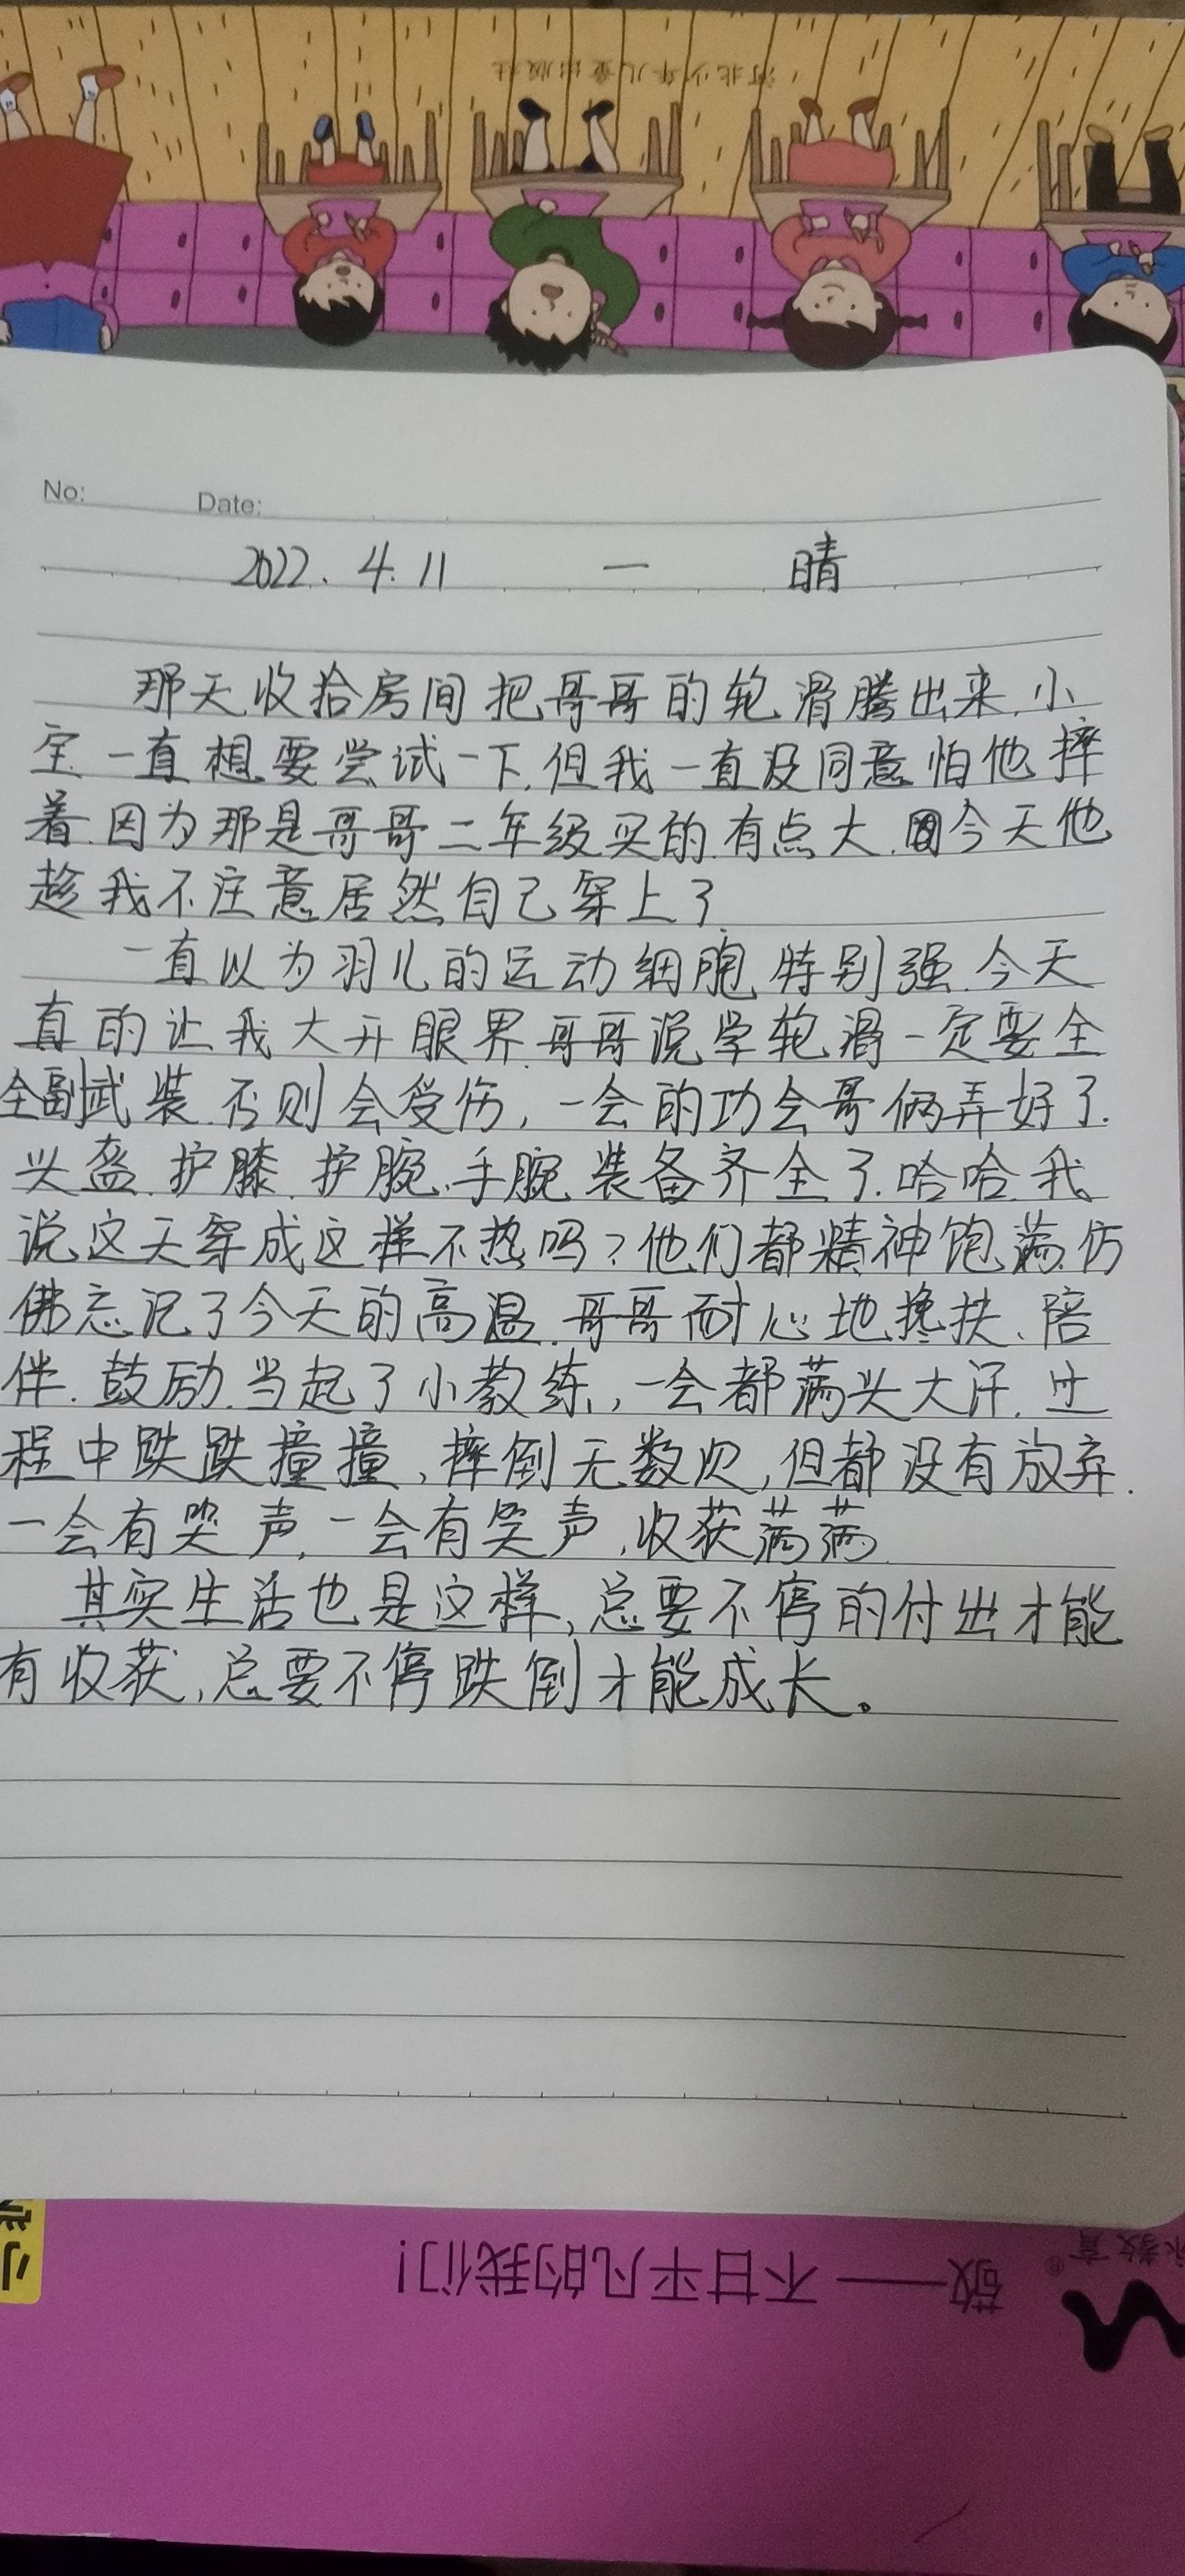 河北少年儿童出版社
No: Date:
2022.4.11 一 晴
那天收拾房间把哥哥的轮滑腾出来.小
宝一直想要尝试一下.但我一直没同意怕他摔
着.因为那是哥哥二年级买的.有点大.今天他
趁我不注意居然自己穿上了
一直以为羽儿的运动细胞特别强.今天
真的让我大开眼界.哥哥说学轮滑一定要全
全副武装.否则会受伤,一会的功会哥俩弄好了.
头盔.护膝.护腕.手腕装备齐全了.哈哈.我
说这天穿成这样不热吗?他们都精神饱满.仿
佛忘记了今天的高温.哥哥耐心地搀扶、陪
伴.鼓励.当起了小教练,一会都满头大汗.过
程中跌跌撞撞,摔倒无数次,但都没有放弃.
一会有哭声,一会有笑声,收获满满
其实生活也是这样,总要不停的付出才能
有收获,总要不停跌倒才能成长。
敬——不甘平凡的我们!
教育
小